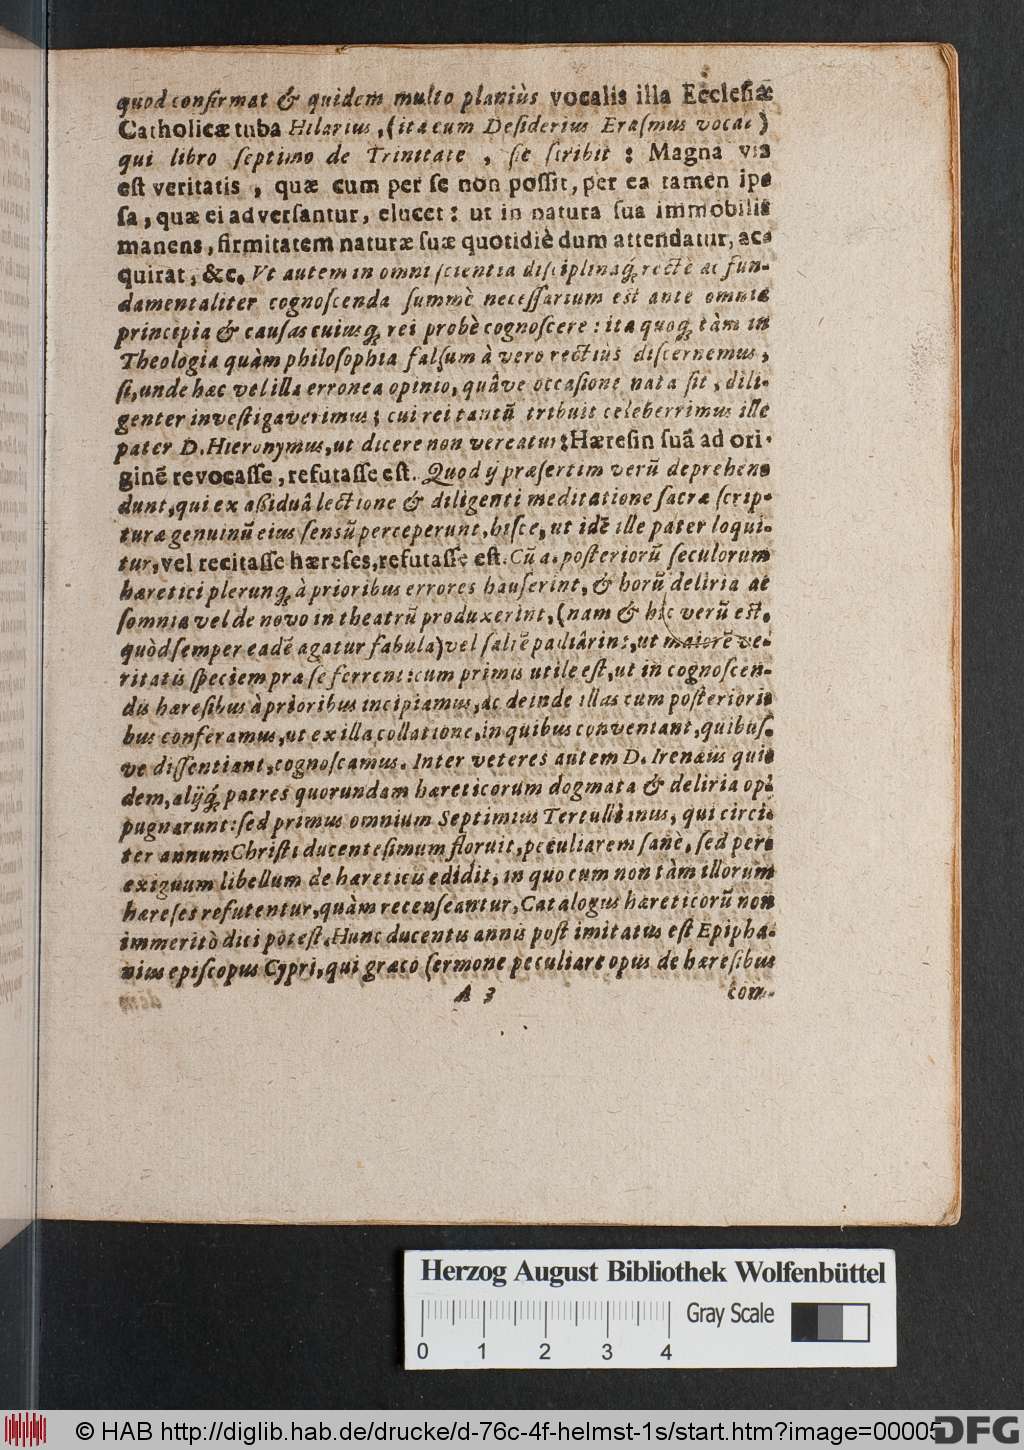 quod confirmat & quidem multo planiùs vocalis illa Ecclesiæ
Catholicæ tuba Hilarius, (ita eum Desiderius Erasmus vocat)
qui libro septimo de Trinitate, sic scribit: Magna vis
est veritatis, quæ cum per se non possit, per ea tamen ip-
sa, quæ ei adversantur, elucet: ut in natura sua immobilis
manens, firmitatem naturæ suæ quotidiè dum attendatur, ac-
quirat, &c. Vt autem in omni scientia disciplinaq́; rectè ac fun-
damentaliter cognoscenda summè necessarium est ante omnia
principia & causas cuiusq́; rei probè cognoscere: ita quoq́; tàm in
Theologia quàm philosophia falsum à vero rectius discernemus,
si, unde hæc vel illa erronea opinio, quâve occasione nata sit, dili-
genter investigaverimus; cui rei tantū tribuit celeberrimus ille
pater D. Hieronymus, ut dicere non vereatur: Hæresin suā ad ori-
ginē revocasse, refutasse est. Quod ij præsertim verū deprehen-
dunt, qui ex aßiduâ lectione & diligenti meditatione sacræ scrip-
turæ genuinū eius sensū perceperunt, hisce, ut idē ille pater loqui-
tur, vel recitasse hæreses, refutasse est. Cū a. posteriorū seculorum
hæretici plerunq́; à prioribus errores hauserint, & horū deliria ac
somnia vel de novo in theatrū produxerint, (nam & hîc verū est,
quòd semper eadē agatur fabula) vel saltē palliârint, ut maiorē ve-
ritatis speciem præ se ferrent: cum primis utile est, ut in cognoscen-
dis hæresibus à prioribus incipiamus, ac deinde illas cum posteriori-
bus conferamus, ut ex illa collatione, in quibus conveniant, quibus-
ve dissentiant, cognoscamus. Inter veteres autem D. Irenæus qui-
dem, alijq́; patres quorundam hæreticorum dogmata & deliria op-
pugnarunt: sed primus omnium Septimius Tertullianus, qui circi-
ter annum Christi ducentesimum floruit, peculiarem sanè, sed per-
exiguum libellum de hæreticis edidit, in quo cum non tàm illorum
hæreses refutentur, quàm recenseantur, Catalogus hæreticorū non
immeritò dici potest. Hunc ducentis annis post imitatus est Epipha-
nius episcopus Cypri, qui græco sermone peculiare opus de hæresibus
A 3
com-
Herzog August Bibliothek Wolfenbüttel
Gray Scale
0 1 2 3 4
© HAB http://diglib.hab.de/drucke/d-76c-4f-helmst-1s/start.htm?image=00005
DFG